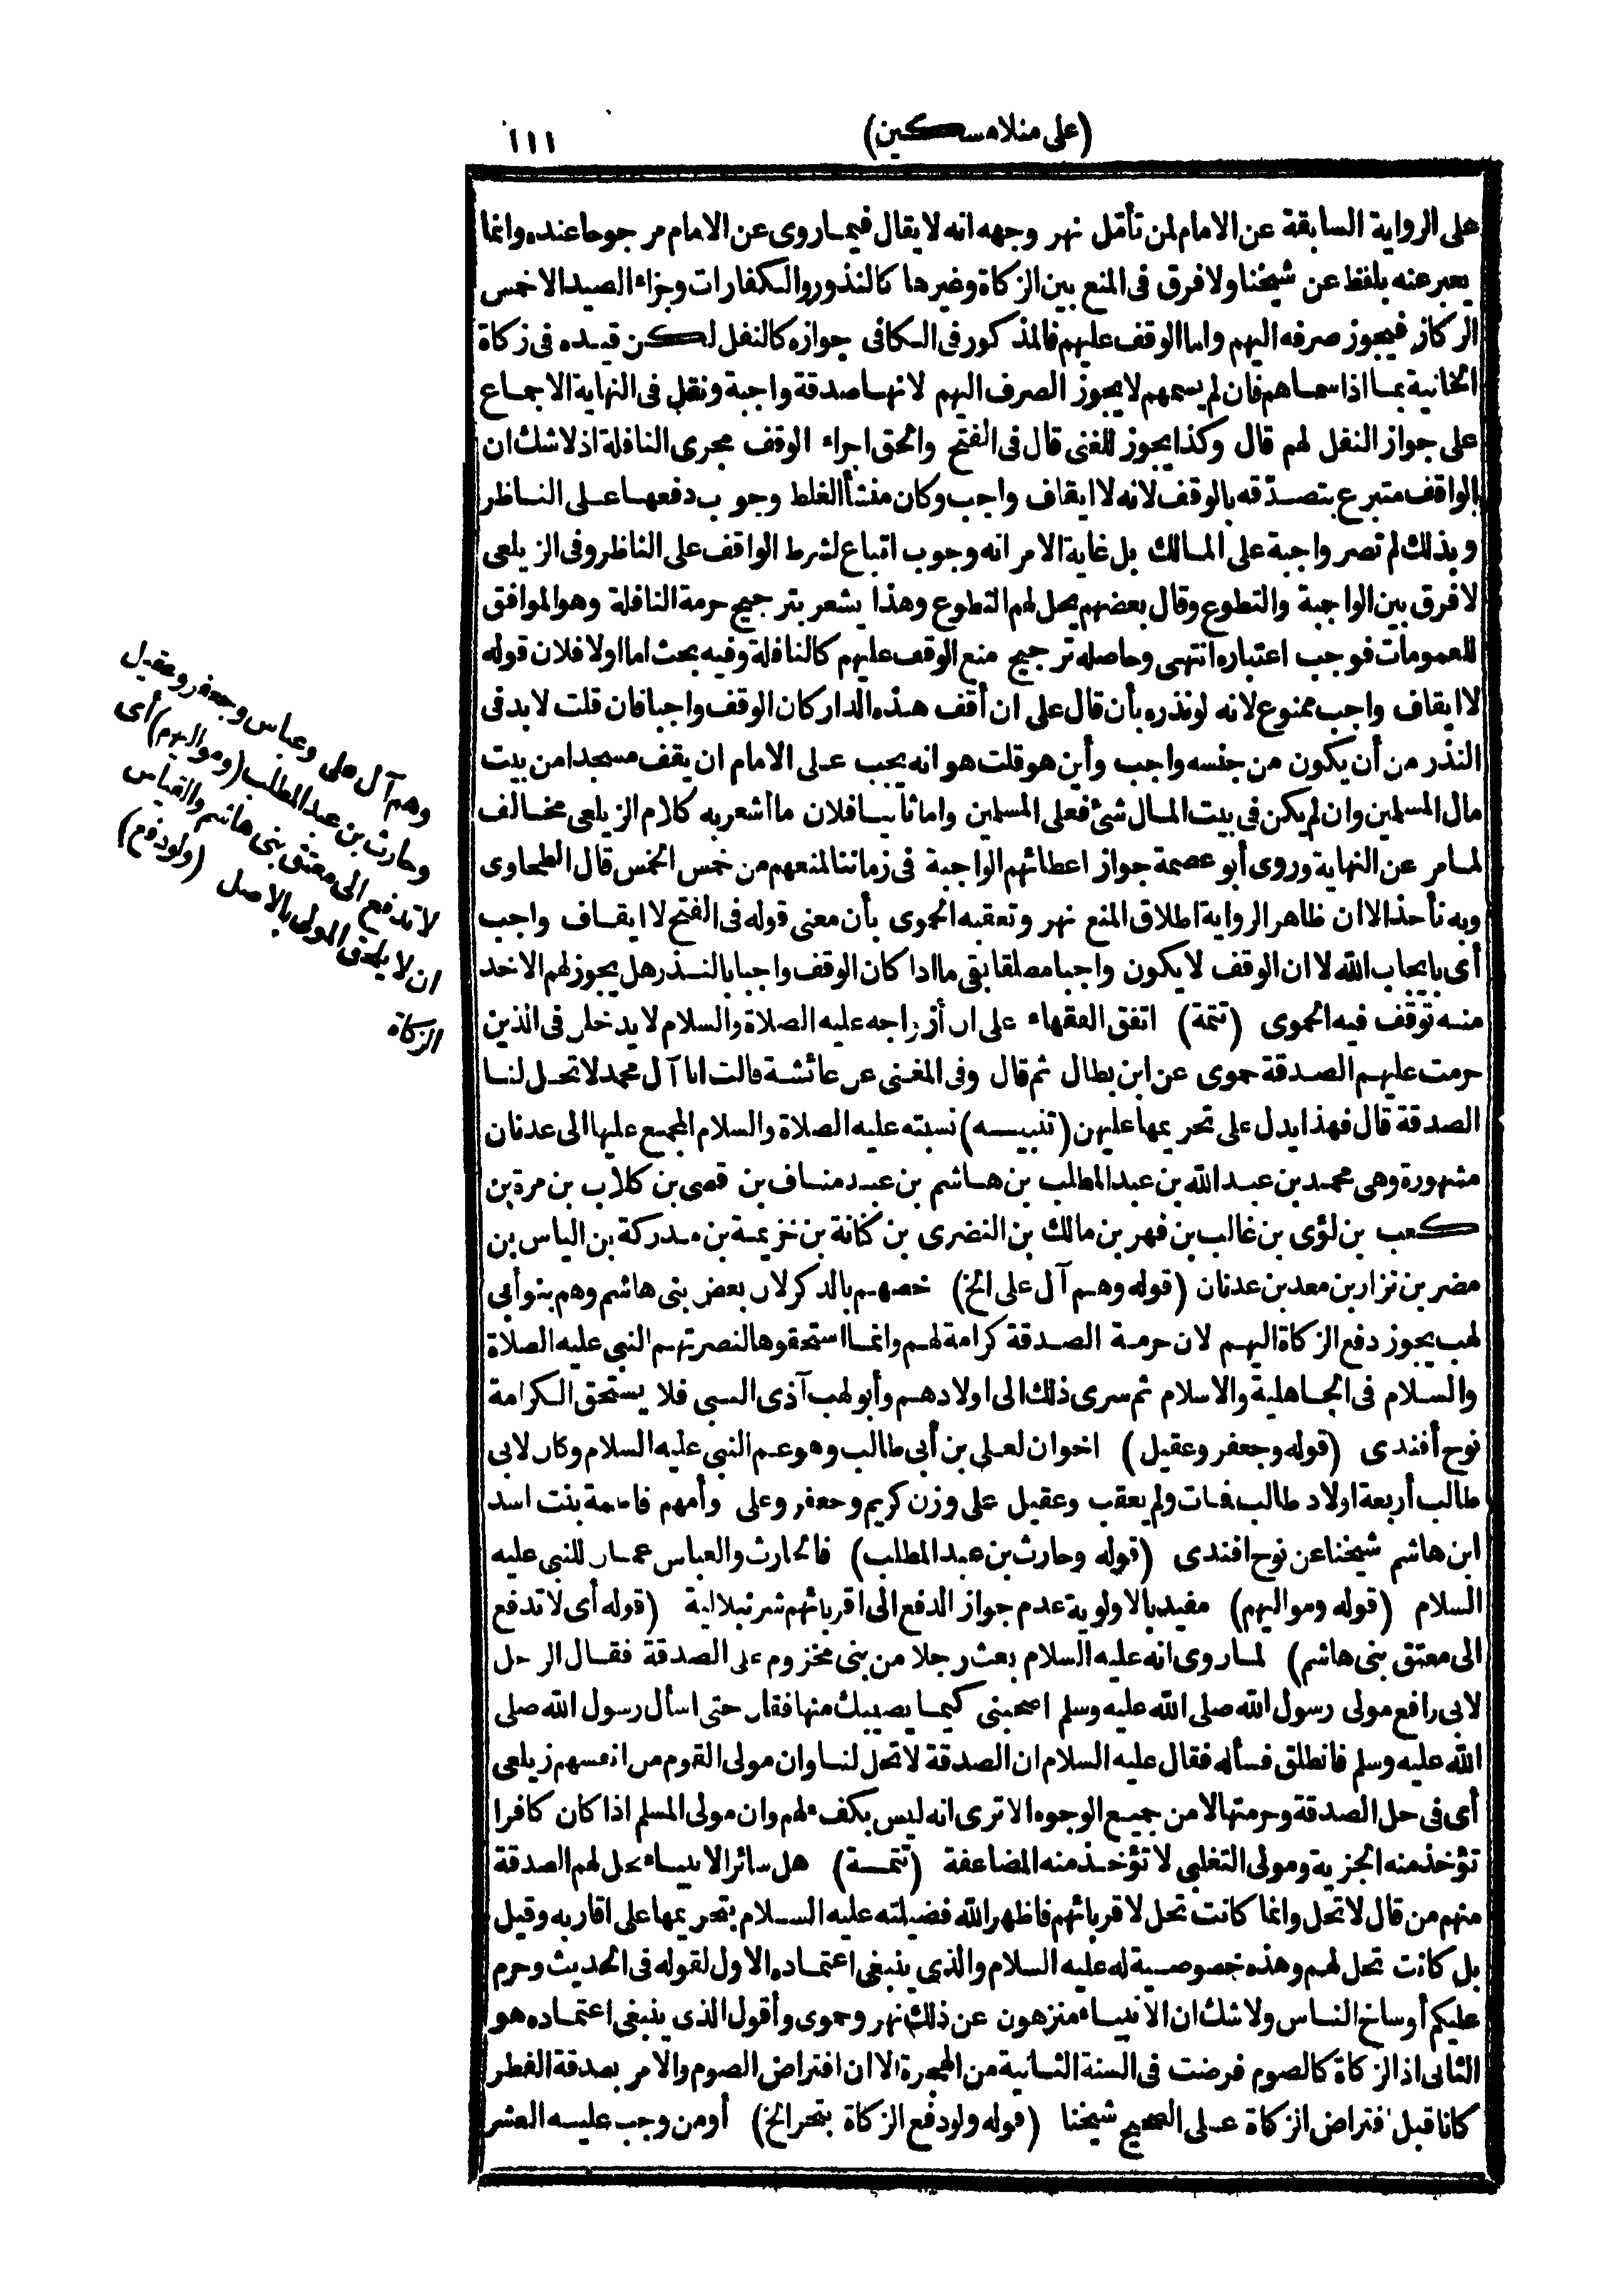 (على منلا مسكين)
١١١
على الرواية السابقة عن الامام لمن تأمّل نهر وجهه انه لا يقال فيما روى عن الامام مرجوحا عنده وانما
يعبر عنه بلفظ عن شيخنا ولا فرق فى المنع بين الزكاة وغيرها كالنذور والكفارات وجزاء الصيد الا خمس
الركاز فيجوز صرفه اليهم واما الوقف عليهم فالمذكور فى الكافى جوازه كالنفل لكن قيده فى زكاة
الخانية بما اذا سماهم فان لم يسمهم لا يجوز الصرف اليهم لانها صدقة واجبة ونقل فى النهاية الاجماع
على جواز النفل لهم قال وكذا يجوز للغنى قال فى الفتح والحق اجراء الوقف مجرى النافلة اذ لا شك ان
الواقف متبرع بتصدّقه بالوقف لانه لا ايقاف واجب وكان منشأ الغلط وجوب دفعها على الناظر
وبذلك لم تصر واجبة على المالك بل غاية الامر انه وجوب اتباع لشرط الواقف على الناظر وفى الزيلعى
لا فرق بين الواجبة والتطوع وقال بعضهم يحل لهم التطوع وهذا يشعر بترجيح حرمة النافلة وهو الموافق
للعمومات فوجب اعتباره انتهى وحاصله ترجيح منع الوقف عليهم كالنافلة وفيه بحث اما اولا فلان قوله
لا ايقاف واجب ممنوع لانه لو نذره بأن قال على ان أقف هذه الدار كان الوقف واجبا فان قلت لا بد فى
النذر من أن يكون من جنسه واجب وأين هو قلت هو انه يجب على الامام ان يقف مسجدا من بيت
مال المسلمين وان لم يكن فى بيت المال شئ فعلى المسلمين واما ثانيا فلان ما أشعر به كلام الزيلعى مخالف
لما مر عن النهاية وروى أبو عصمة جواز اعطائهم الواجبة فى زماننا لمنعهم من خمس الخمس قال الطحاوى
وبه نأخذ الا ان ظاهر الرواية اطلاق المنع نهر وتعقبه الحموى بأن معنى قوله فى الفتح لا ايقاف واجب
أى بايجاب الله لا ان الوقف لا يكون واجبا مطلقا بقى ما اذا كان الوقف واجبا بالنذر هل يجوز لهم الاخذ
منه توقف فيه الحموى (تتمة) اتفق الفقهاء على ان أزواجه عليه الصلاة والسلام لا يدخلن فى الذين
حرمت عليهم الصدقة حموى عن ابن بطال ثم قال وفى المغنى عن عائشة قالت انا آل محمد لا تحل لنا
الصدقة قال فهذا يدل على تحريمها عليهن (تنبيه) نسبته عليه الصلاة والسلام المجمع عليها الى عدنان
مشهورة وهى محمد بن عبد الله بن عبد المطلب بن هاشم بن عبد مناف بن قصى بن كلاب بن مرة بن
كعب بن لؤى بن غالب بن فهر بن مالك بن النضرى بن كنانة بن خزيمة بن مدركة بن الياس بن
مضر بن نزار بن معد بن عدنان (قوله وهم آل على الخ) خصهم بالذكر لان بعض بنى هاشم وهم بنو أبى
لهب يجوز دفع الزكاة اليهم لان حرمة الصدقة كرامة لهم وانما استحقوها لنصرتهم النبى عليه الصلاة
والسلام فى الجاهلية والاسلام ثم سرى ذلك الى اولادهم وأبو لهب آذى النبى فلا يستحق الكرامة
نوح أفندى (قوله وجعفر وعقيل) اخوان لعلى بن أبى طالب وهو عم النبى عليه السلام وكان لابى
طالب أربعة اولاد طالب فمات ولم يعقب وعقيل على وزن كريم وجعفر وعلى وأمهم فاطمة بنت اسد
ابن هاشم شيخنا عن نوح افندى (قوله وحارث بن عبد المطلب) فالحارث والعباس عمان للنبى عليه
السلام (قوله ومواليهم) مفيد بالاولوية عدم جواز الدفع الى اقربائهم شرنبلالية (قوله أى لا تدفع
الى معتق بنى هاشم) لما روى انه عليه السلام بعث رجلا من بنى مخزوم على الصدقة فقال الرجل
لابى رافع مولى رسول الله صلى الله عليه وسلم اصحبنى كيما يصيبك منها فقال حتى اسأل رسول الله صلى
الله عليه وسلم فانطلق فسأله فقال عليه السلام ان الصدقة لا تحل لنا وان مولى القوم من انفسهم زيلعى
أى فى حل الصدقة وحرمتها لا من جميع الوجوه الا ترى انه ليس بكفء لهم وان مولى المسلم اذا كان كافرا
تؤخذ منه الجزية ومولى التغلبى لا تؤخذ منه المضاعفة (تتمة) هل سائر الانبياء تحل لهم الصدقة
منهم من قال لا تحل وانما كانت تحل لاقربائهم فاظهر الله فضيلته عليه السلام بتحريمها على اقاربه وقيل
بل كانت تحل لهم وهذه خصوصية له عليه السلام والذى ينبغى اعتماده الاول لقوله فى الحديث وحرم
عليكم أوساخ الناس ولا شك ان الانبياء منزهون عن ذلك نهر وحموى وأقول الذى ينبغى اعتماده هو
الثانى اذ الزكاة كالصوم فرضت فى السنة الثانية من الهجرة الا ان افتراض الصوم والامر بصدقة الفطر
كانا قبل افتراض الزكاة على الصحيح شيخنا (قوله ولو دفع الزكاة بتحر الخ) أو من وجب عليه العشر
وهم آل على وعباس وجعفر وعقيل
وحارث بن عبد المطلب (ومواليهم) أى
لا تدفع الى معتق بنى هاشم والقياس
ان لا يلحق المولى بالاصل (ولو دفع)
الزكاة